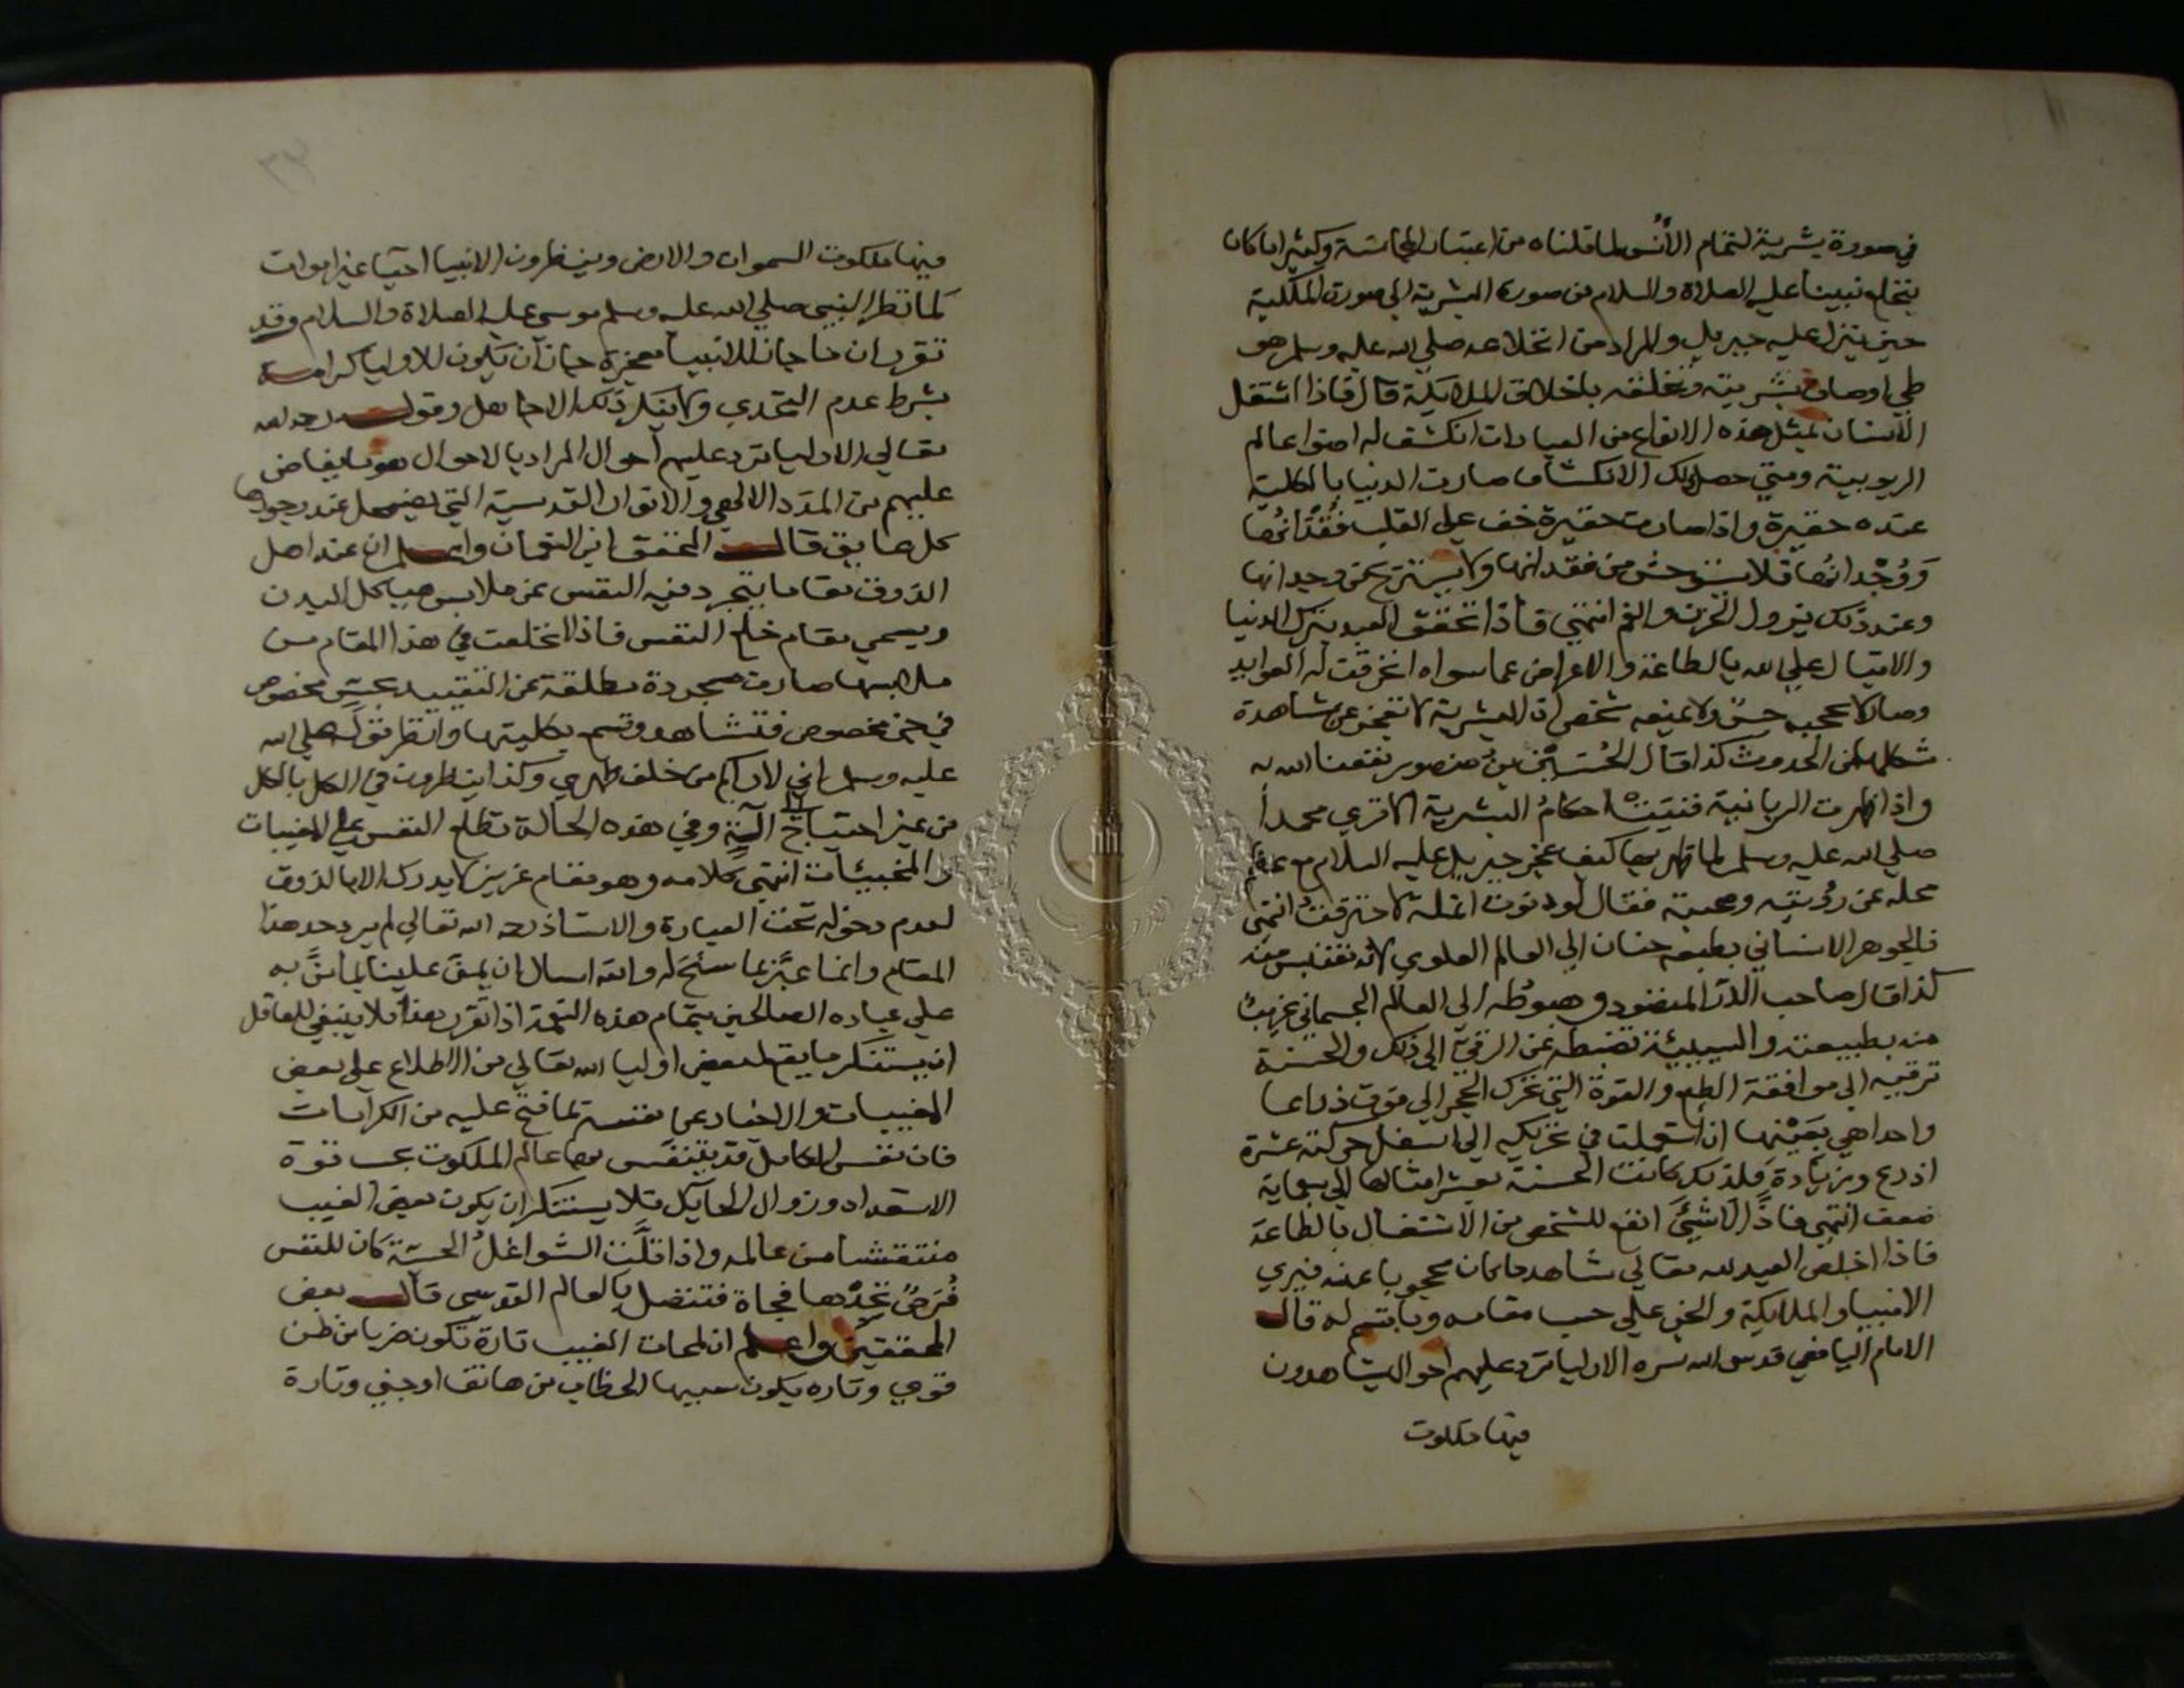 في صورة بشرية لتمام الأنس لما قلناه من اعتبار المجانسة وكثيرا ما كان
ينخلع نبينا عليه الصلاة والسلام من صورة البشرية الي صورة الملكية
حين ينزل عليه جبريل والمراد من انخلاعه صلي الله عليه وسلم هو
طي اوصاف بشريته وتخلقه باخلاق الملايكة قال فاذا اشتغل
الانسان بمثل هذه الانواع من العبادات انكشف له اضوا عالم
الربوبية ومتي حصل ذلك الانكشاف صارت الدنيا بالكلية
عنده حقيرة واذا صارت حقيرة خف علي القلب فقدانها
ووجدانها فلا يستوحش من فقدانها ولا يستريح من وجدانها
وعند ذلك يزول الحزن والغم انتهي فاذا تحقق العبد بترك الدنيا
والاقبال علي الله بالطاعة والاعراض عما سواه انخرقت له العوايد
وصار لا يحجبه حس ولا يمنعه شخص اذ البشرية لا تعجز عن مشاهدة
شكلها من الحدوث كذا قال الحسين بن منصور نفعنا الله به
واذا ظهرت الربانية فنيت احكام البشرية الا تري محمدا
صلي الله عليه وسلم لما ظهر بها كيف عجز جبريل عليه السلام مع عظم
محله عن رؤيته وصحبته فقال لو دنوت انملة لاحترقت انتهي
فالجوهر الانساني بطبعه حنان الي العالم العلوي لانه مقتبس منه
كذا قال صاحب الدر المنضود وهبوطه الي العالم الجسماني غريب
منه بطبيعته والسيئة تضبطه عن الرقي الي ذلك والحسنة
ترقيه الي موافقة الطبع والقوة التي تحرك الحجر الي فوق ذراعا
واحدا هي بعينها ان استعملت في تحريكه الي اسفل حركته عشرة
اذرع وزيادة فلذلك كانت الحسنة بعشر امثالها الي سبعماية
ضعف انتهي فاذا لا شيء انفع للشخص من الاشتغال بالطاعة
فاذا اخلص العبد لله تعالي شاهد ما كان محجوبا عنه فيري
الانبيا والملايكة والجن علي حسب مقامه وما قسم له قال
الامام اليافعي قدس الله سره الاوليا ترد عليهم احوال يشاهدون
فيها ملكوت
فيها ملكوت السموات والارض وينظرون الانبيا احيا غير اموات
كما نظر النبي صلي الله عليه وسلم موسي عليه الصلاة والسلام وقد
تقرر ان ما جاز للانبيا معجزة جاز ان يكون للاوليا كرامة
بشرط عدم التحدي ولا ينكر ذلك الا جاهل وقوله رحمه الله
تعالي الاوليا ترد عليهم احوال المراد بالاحوال هو ما يفاض
عليهم من المدد الالهي والانوار القدسية التي يضمحل عند وجودها
كل عايق قال المحقق ابن النعمان واعلم ان عند اهل
الذوق مقاما يتجرد فيه النفس عن ملابس هياكل البدن
ويسمي مقام خلع النفس فاذا انخلعت في هذا المقام من
ملابسها صارت مجردة مطلقة عن التقييد بحس مخصوص
في حيز مخصوص فتشاهد وتسمع بكليتها وانظر قوله صلي الله
عليه وسلم اني لاراكم من خلف ظهري وكذا ينطوي في الكل بالكل
من غير احتياج الى آلة وفي هذه الحالة تطلع النفس علي المغيبات
والمخبيات انتهي كلامه وهو مقام عزيز لا يدرك الا بالذوق
لعدم دخوله تحت العبارة والاستاذ رحمه الله تعالي لم يرد حد هذا
المقام وانما عبر بما سنح له والله اسال ان يمن علينا بما من به
علي عباده الصالحين بتمام هذه النعمة اذا تقرر هذا فلا ينبغي للعاقل
ان يستنكر ما يقع لبعض اوليا الله تعالي من الاطلاع علي بعض
المغيبات والاخبار عما نفسه لما فتح عليه من الكرامات
فان نفس الكامل قد ينتقش بها عالم الملكوت بحسب قوة
الاستعداد وزوال الحايل فلا يستنكر ان يكون بعض الغيب
منتقشا من عالمه واذا قلت الشواغل الحسية كان للنفس
فرص تجدها فجاة فتتصل بالعالم القدسي قال بعض
المحققين واعلم ان لمحات الغيب تارة تكون ضربا من ظن
قوي وتاره يكون سببها الخطاب من هاتف او جني وتارة